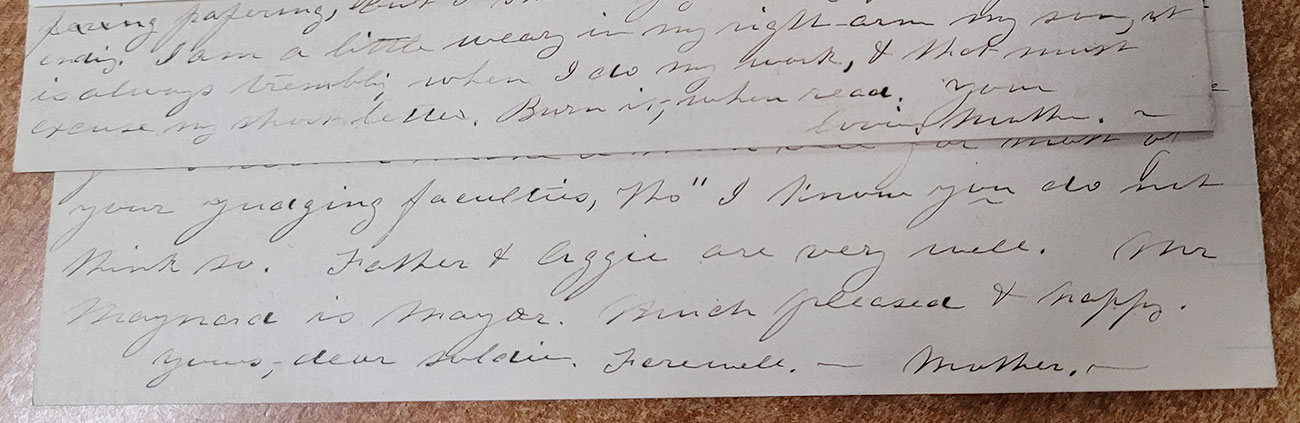 papering, but I
ending. I am a little weary in my right arm my son, it
is always trembly when I do my work, & that must
excuse my short letter. Burn it, when read. Your
loving Mother. ~
for most of
your judging faculties, tho" I know you do not
think so. Father & Aggie are very well. Mr
Maynard is Mayor. Much pleased & happy.
Yours, dear soldier. Farewell. — Mother. —